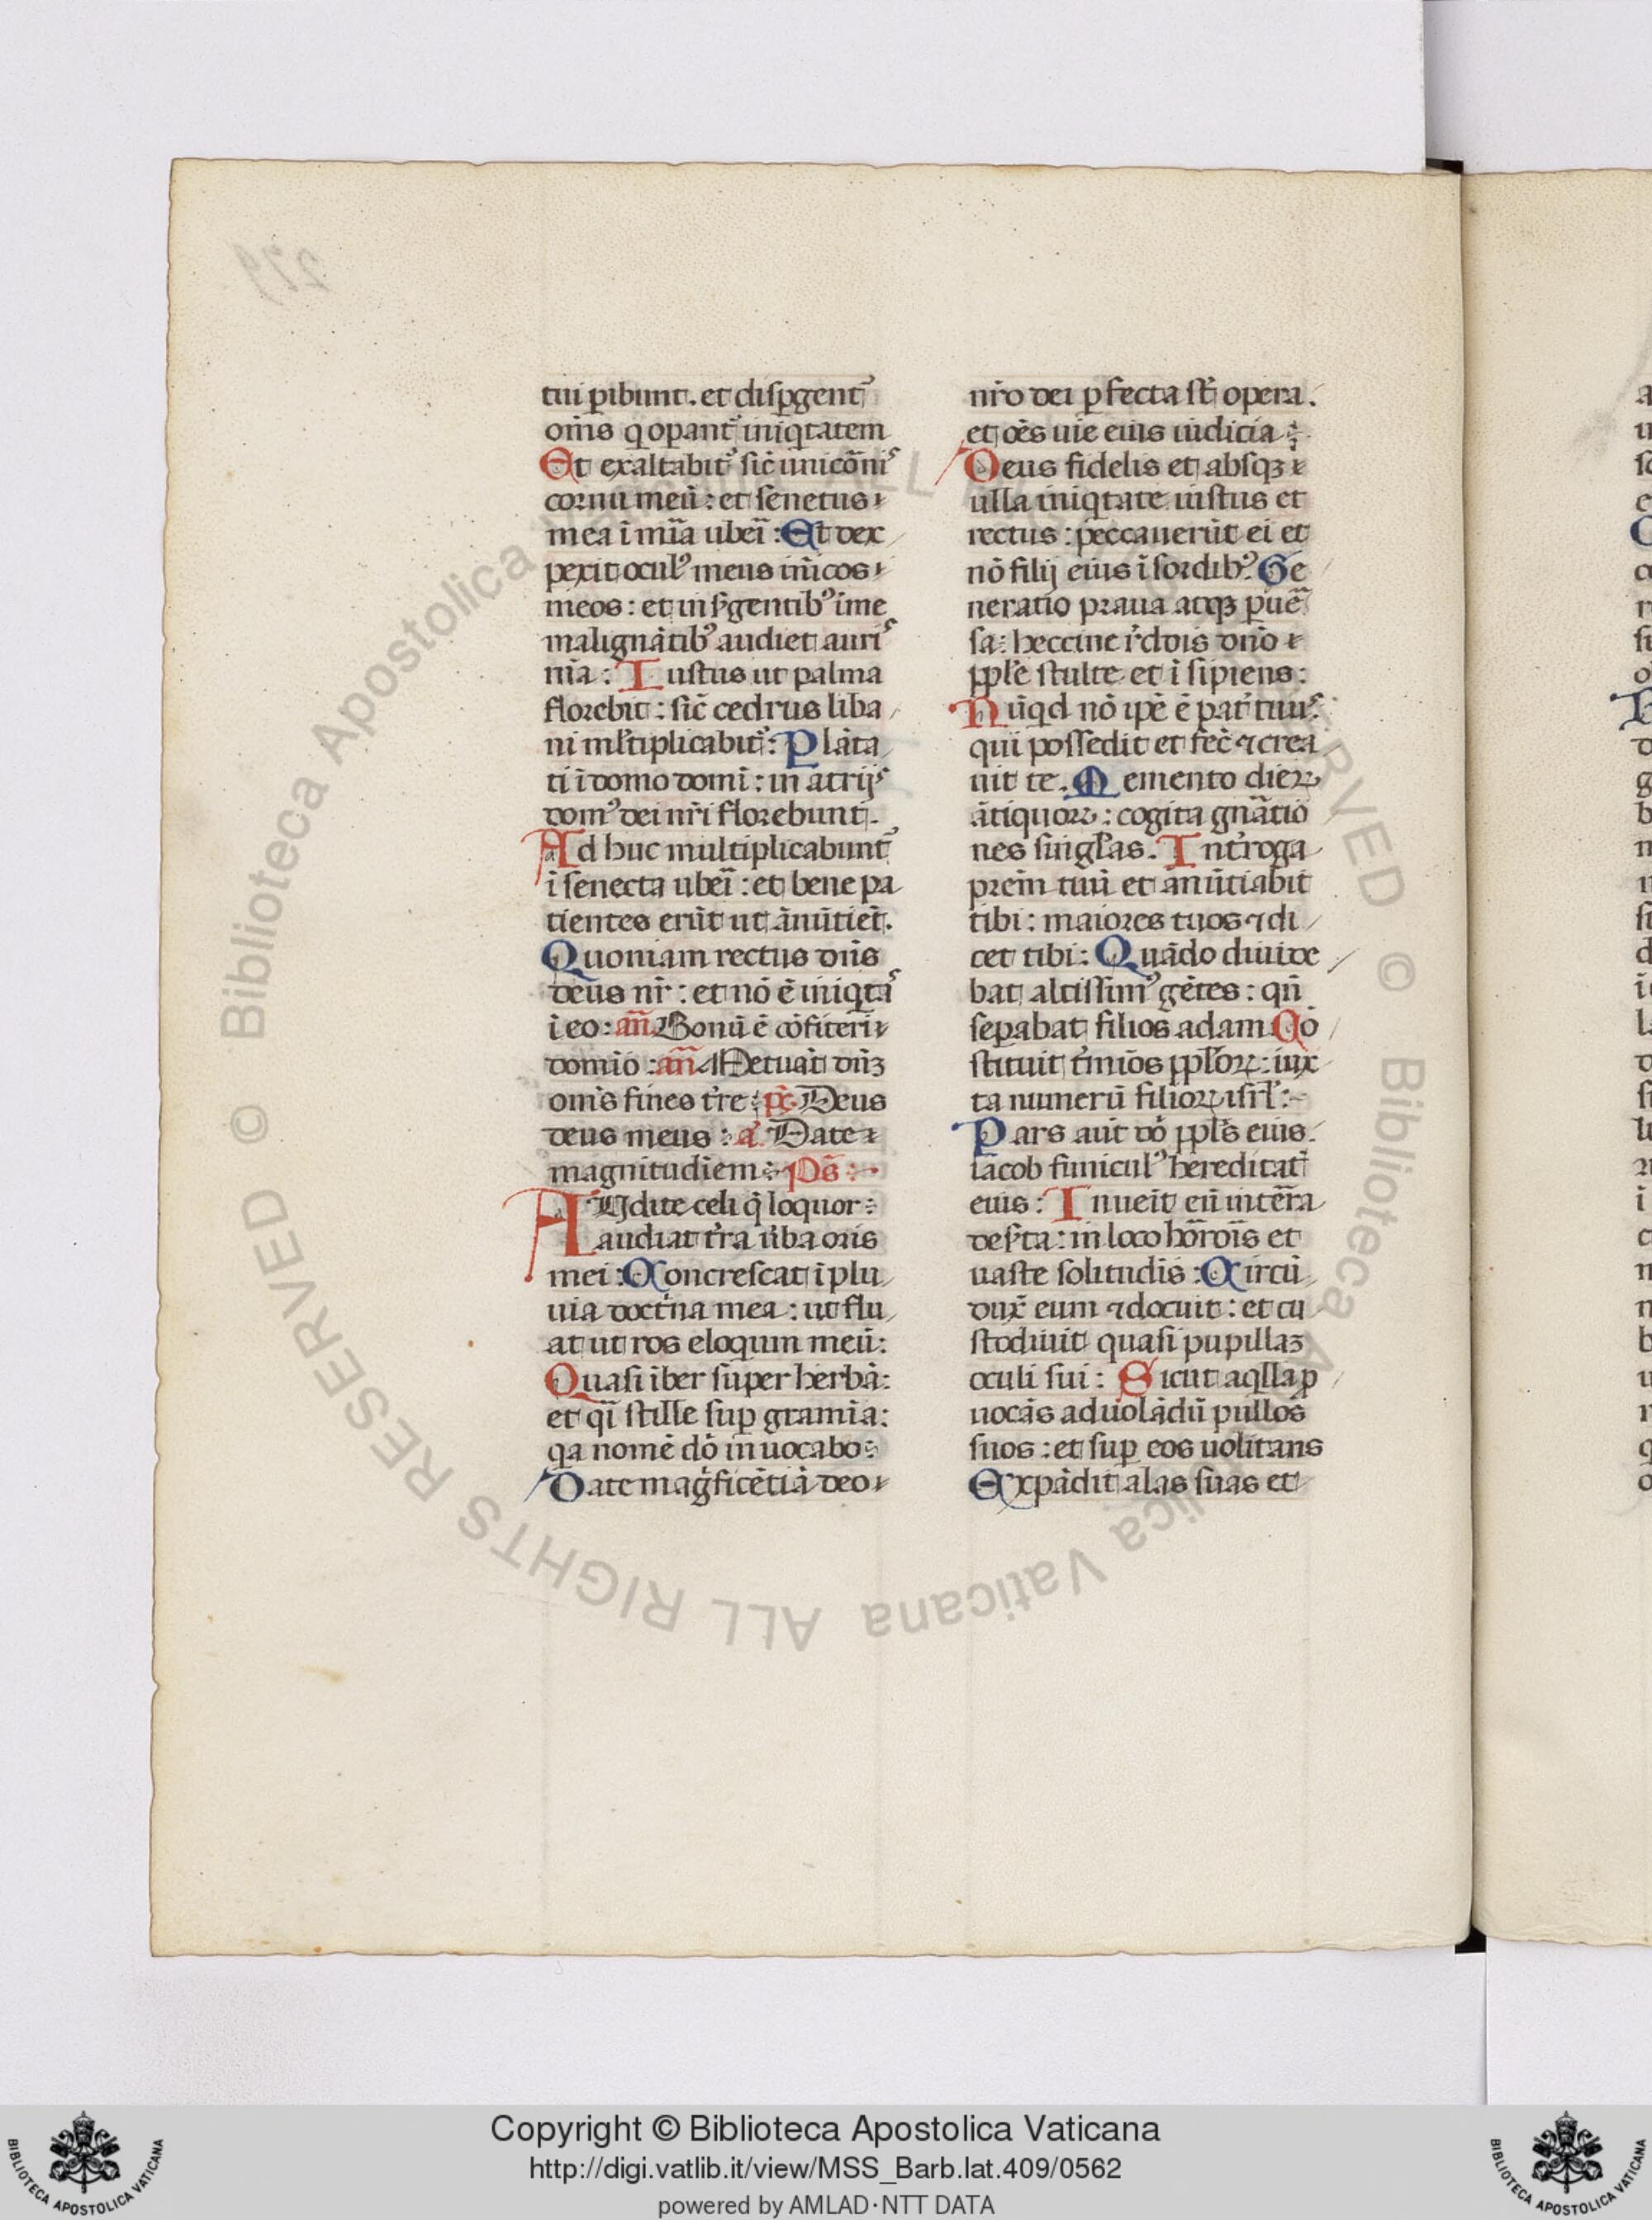 tui ꝑibunt. et disꝑgentᷣ
om̄s q̇ oꝑantᷣ iniqͥtatem
Et exaltabitᷣ sic̄ unicōniˢ
cornu meū: et senetus
mea ī mīa ubeī: Et dex
pexit oculꝰ meus inīcos
meos: et in sᷣgentibꝰ ī me
malignātibꝰ audiet auriˢ
mīa: Iustus ut palma
florebit: sic̄ cedrus liba
ni ml̄tiplicabitᷣ: Plāta
ti ī domo domī: in atrijˢ
domꝰ dei nr̄i florebunt.
Ad huc multiplicabuntᷣ
ī senecta ubeī: et bene pa
tientes erūt ut ānūtiēt.
Quoniam rectus dn̄s
deus nr̄: et nō ē iniqͥtaˢ
ī eo: an̄ Bonū ē cōfiteri
domīo: an̄ Metuāt dn̄ꝫ
om̄s fines tr̄e: p̄ẋ Deus
deus meus: a Date
magnitudīem: Pš:
AUdite celi q̄ loquor:
audiat tr̄a ūba oris
mei: Concrescat ī plu
uia doctͥna mea: ut flu
at ut ros eloqum meū:
Quasi īber super herbā:
et qͣī stille suꝑ gramīa:
qa nomē dō inuocabo:
Date magͥficētiā deo
nr̄o dei ꝑfecta st̄ opera.
et oēs uie eius iudicia:
Deus fidelis et absqꝫ
ulla iniqͥtate iustus et
rectus: peccauerūt ei et
nō filij eius ī sordibꝰ. Ge
neratio praua atqꝫ ꝑuē
sa: heccine rͤdois dn̄o
pple stulte et īsipiens:
Nūqd nō ipē ē patᷣ tuuˢ.
qui possedit et fec̄ ⁊ crea
uit te. Memento dieꝝ
ātiquoꝝ: cogita gnātio
nes singl̄as. Intᷣroga
prēm tuū et ānūtiabit
tibi: maiores tuos ⁊ di
cet tibi: Quādo diuide
bat altissimꝰ gētes: qn̄
seꝑabat filios adam. Cō
stituit tᷣmīos pploꝝ: iux
ta numerū filioꝝ isrl̄:
Pars aūt dō ppl̄s eius.
iacob funiculꝰ hereditatͥ
eius: Inueīt eū in tēra
desᷣta: in loco hōrōis et
uaste solitudīs: Circū
dux̄ eum ⁊ docuit: et cu
stodiuit quasi pupillaꝫ
oculi sui: Sicut aqͥlla ꝓ
uocās ad uolādū pullos
suos: et suꝑ eos uolitans
Expādit alas suas et
Copyright © Biblioteca Apostolica Vaticana
http://digi.vatlib.it/view/MSS_Barb.lat.409/0562
powered by AMLAD·NTT DATA